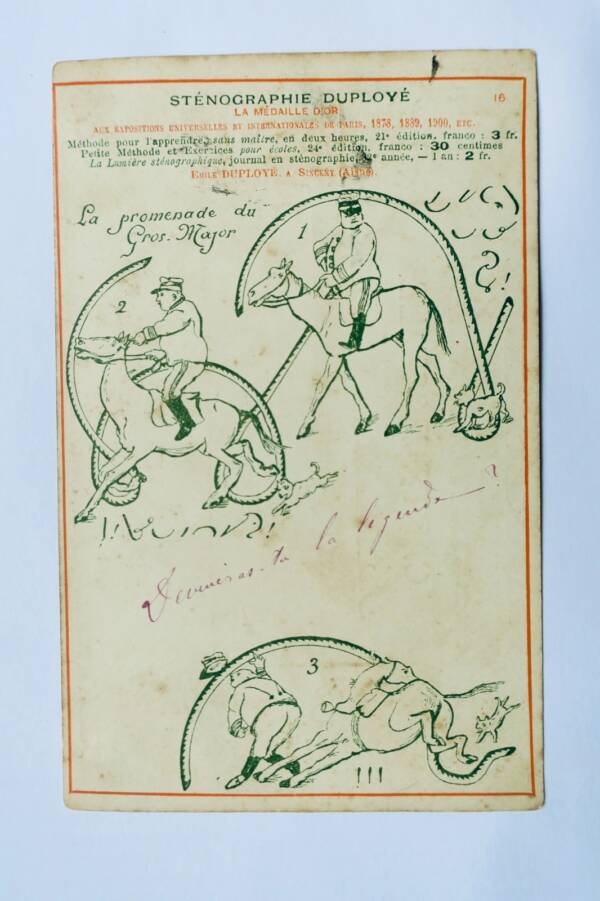 STÉNOGRAPHIE DUPLOYÉ
16
LA MÉDAILLE D'OR
AUX EXPOSITIONS UNIVERSELLES ET INTERNATIONALES DE PARIS, 1878, 1889, 1900, ETC.
Méthode pour l'apprendre, sans maître, en deux heures, 21e édition, franco : 3 fr.
Petite Méthode et Exercices pour écoles, 24e édition, franco : 30 centimes
La Lumière sténographique, journal en sténographie, année, — 1 an : 2 fr.
EMILE DUPLOYÉ, A SINCENY (AISNE).
La promenade du
Gros-Major
1
!
2
!!
!
Devineras-tu la légende ?
3
!!!